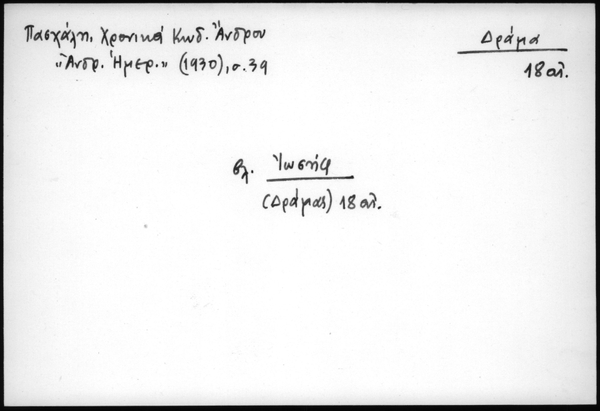 Πασχάλη, Χρονικά Κωδ. Ἄνδρου
"Ἀνδρ. Ἡμερ." (1930), σ. 39
Δράμα
18 αἰ.
βλ. Ἰωσήφ
(Δράμας) 18 αἰ.